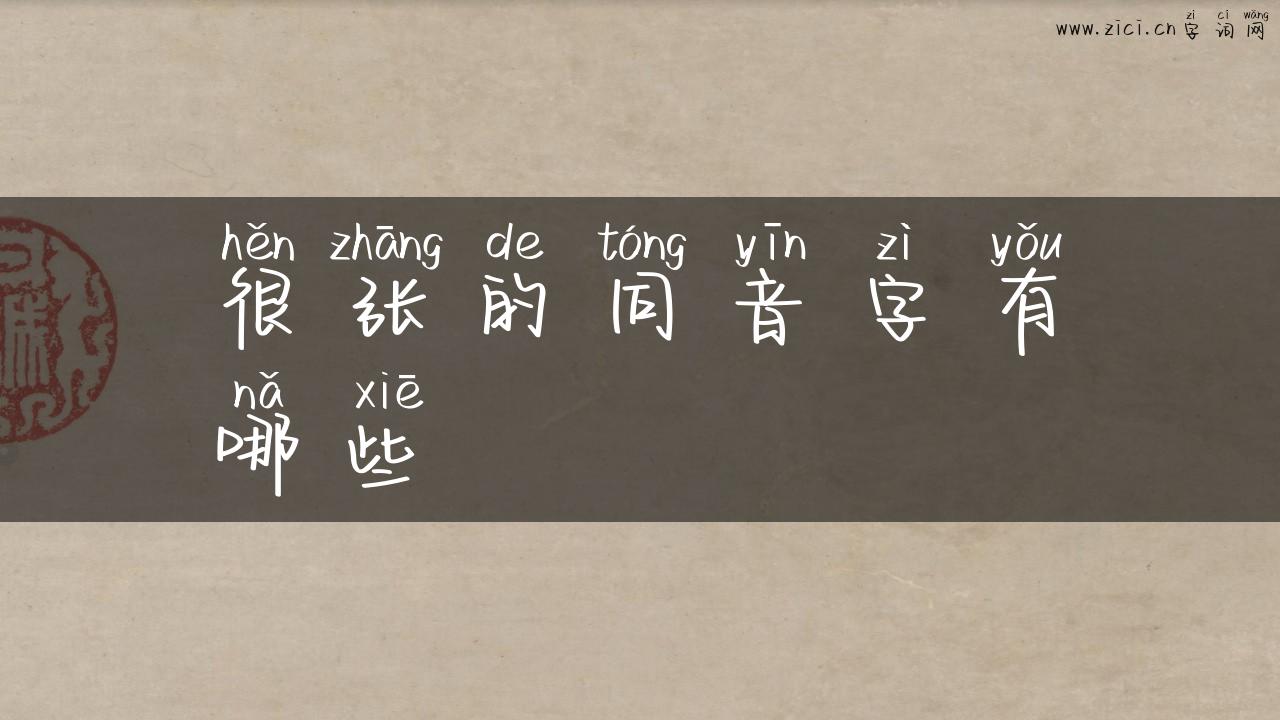 zì cí wǎng
www.zici.cn 字 词 网
hěn zhāng de tóng yīn zì yǒu
很 张 的 同 音 字 有
nǎ xiē
哪 些